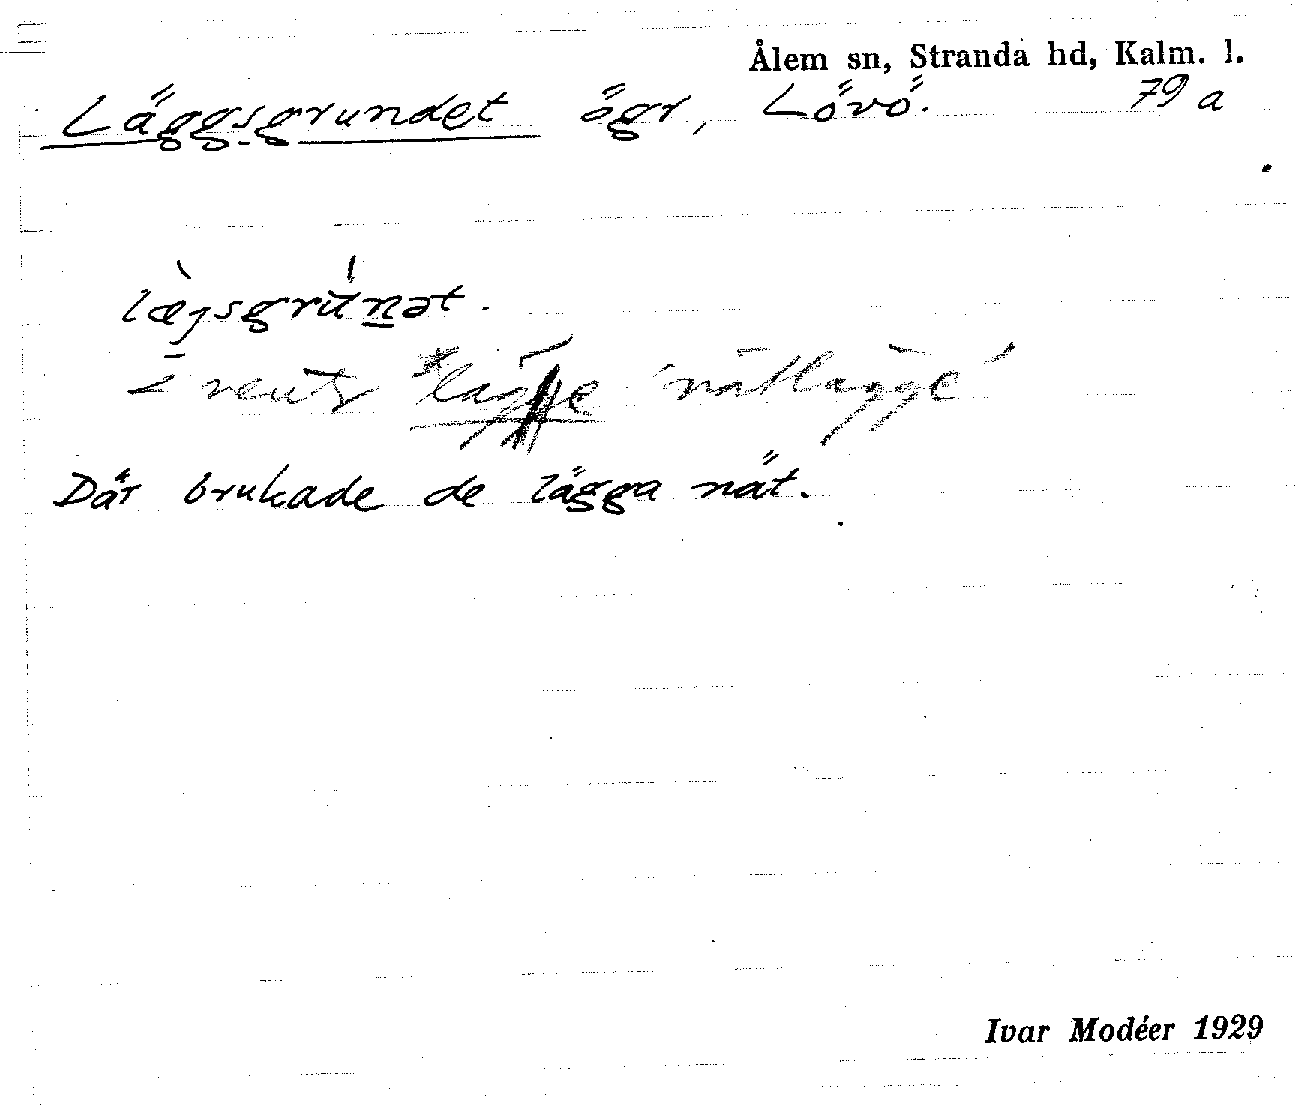 Ålem sn, Stranda hd, Kalm. l.
Läggsgrundet ögr, Lövö. 79 a
læ̀gsgrún̲ət.
nätlägge'
Där brukade de lägga nät.
Ivar Modéer 1929